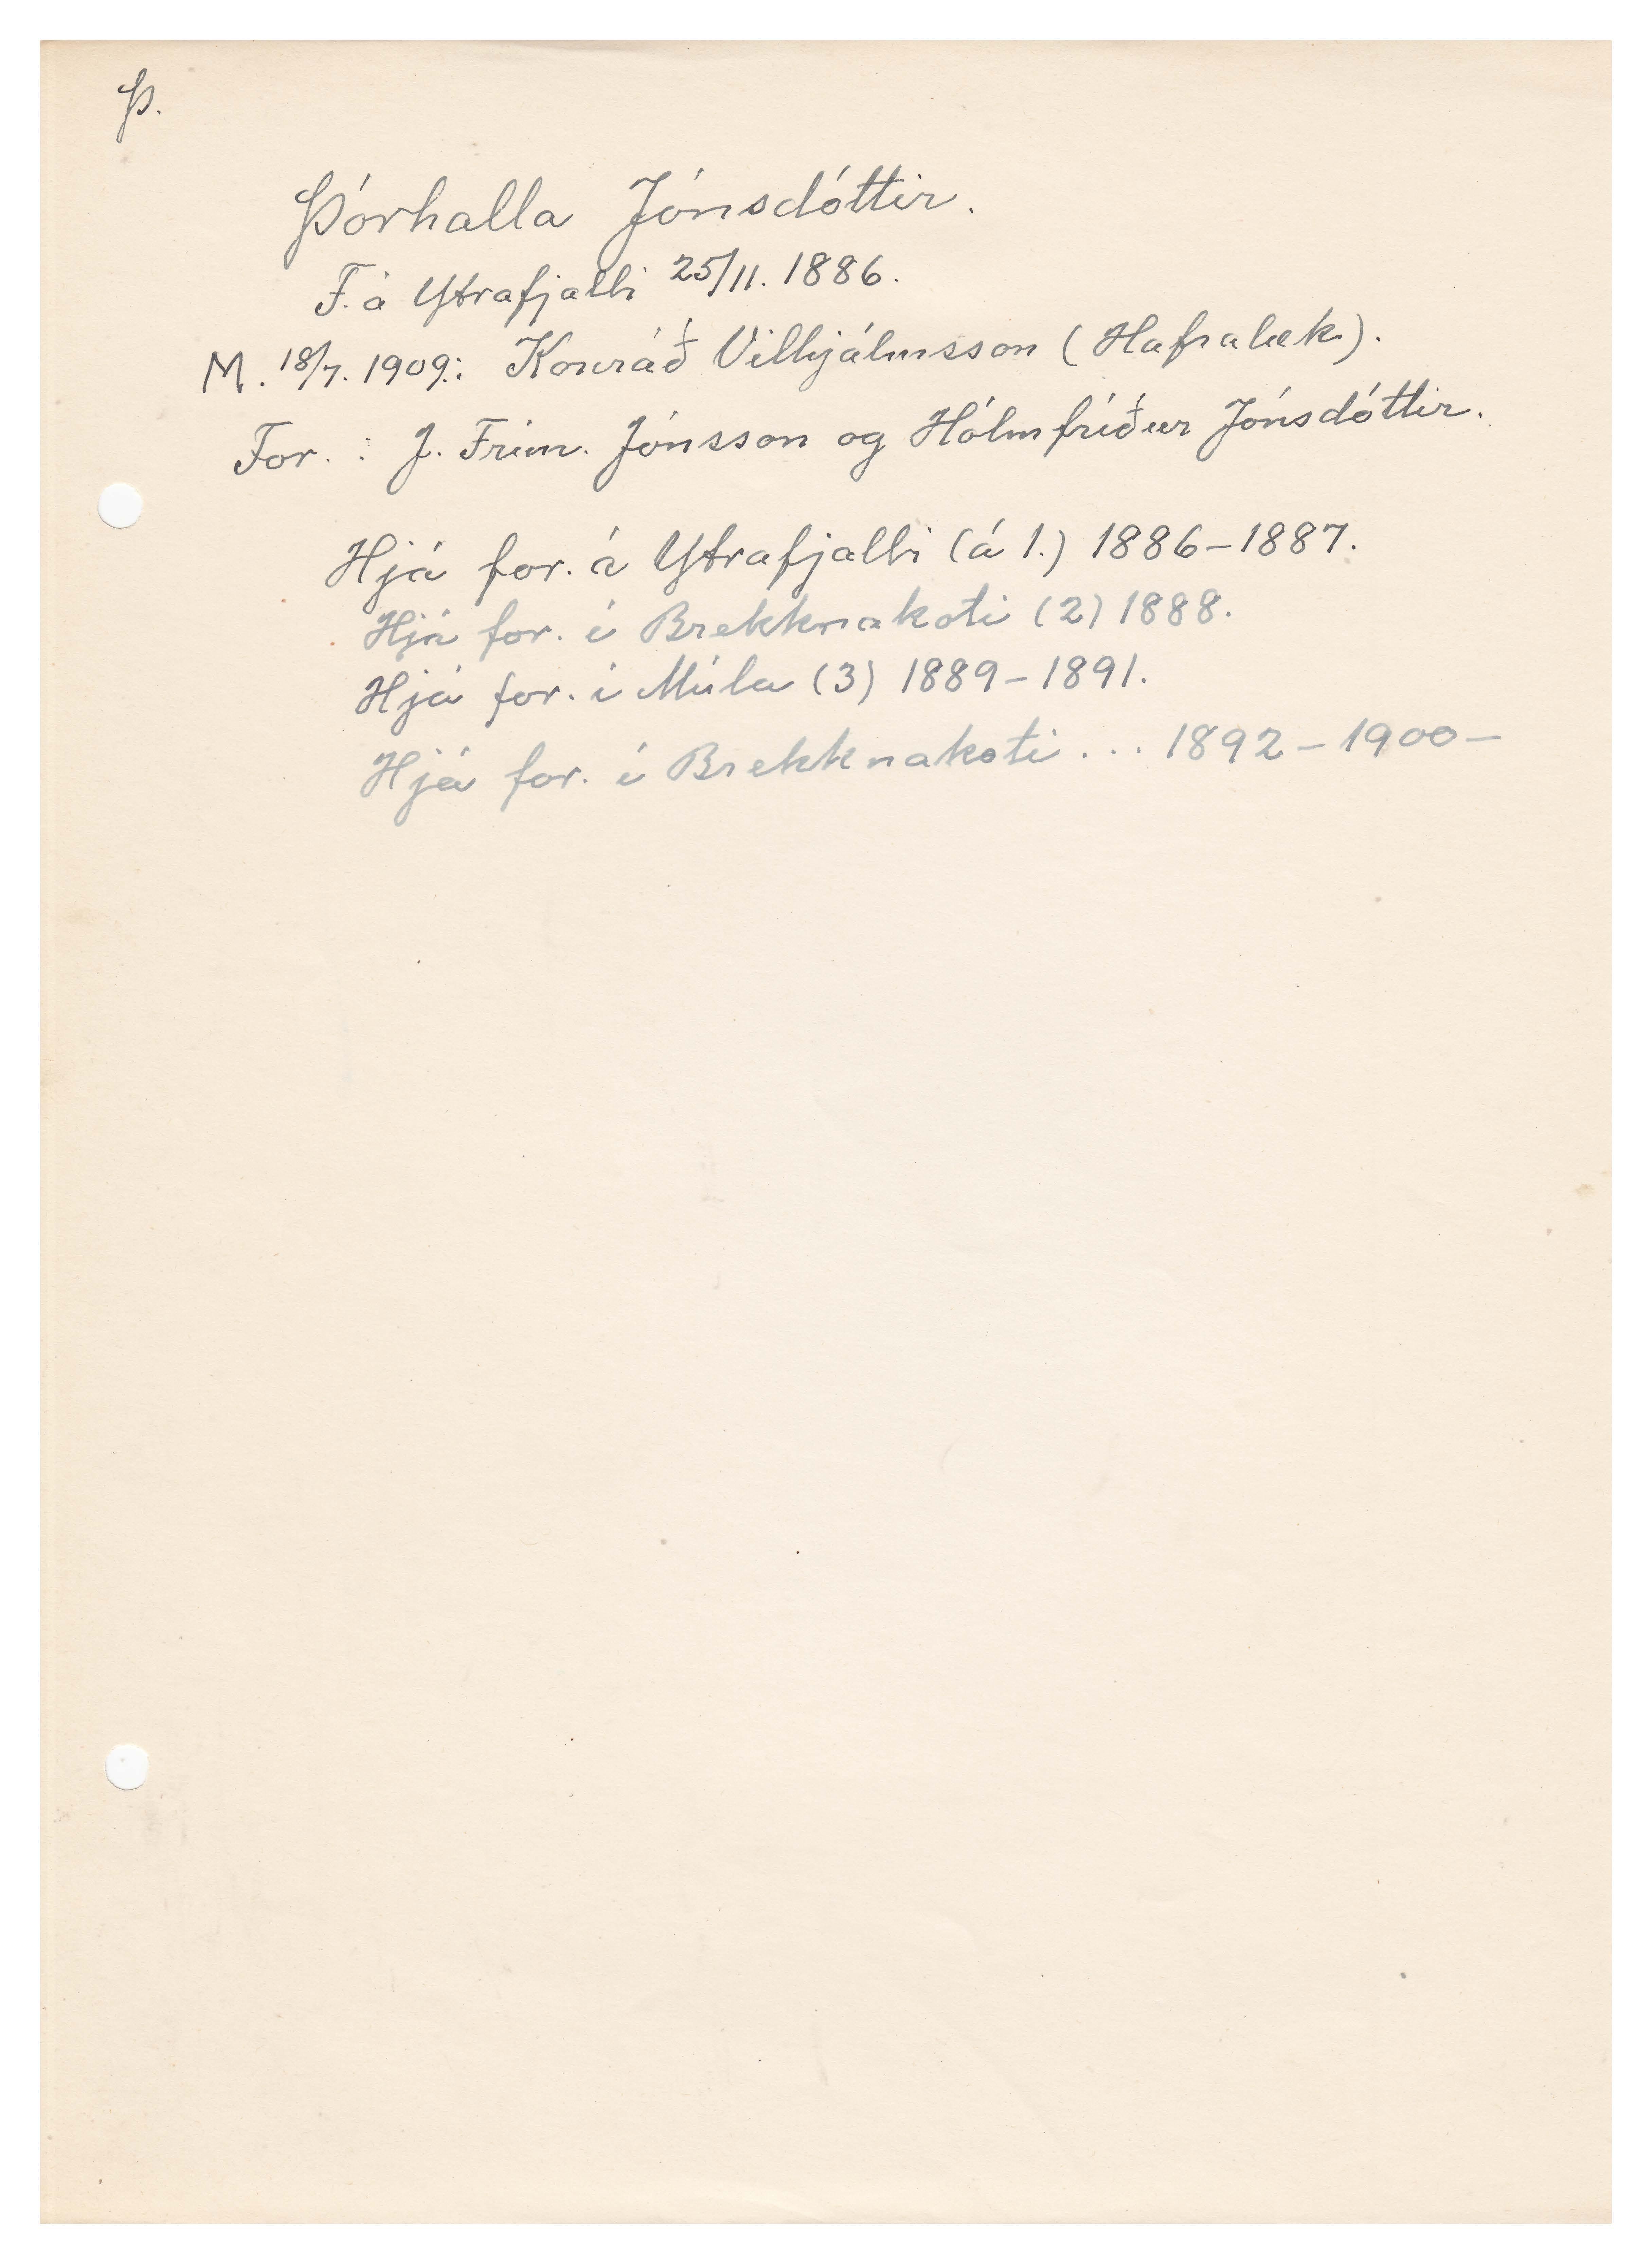 Þ.
Þórhalla Jónsdóttir.
F. á Ytrafjalli 25/11. 1886.
M. 18/7. 1909.: Konráð Vilhjálmsson (Hafralæk).
For. : J. Frím. Jónsson og Hólmfríður Jónsdóttir.
Hjá for. á Ytrafjalli (á 1.) 1886-1887.
Hjá for. í Brekknakoti (2) 1888.
Hjá for. í Múla (3) 1889-1891.
Hjá for. í Brekknakoti ... 1892-1900-